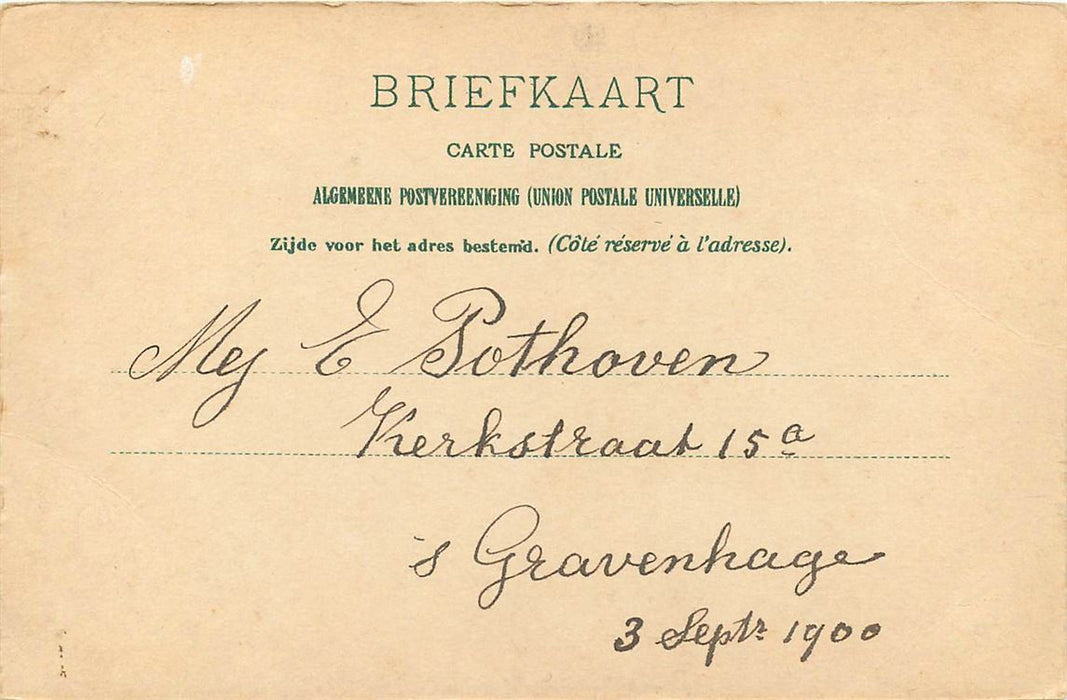 BRIEFKAART
CARTE POSTALE
ALGEMEENE POSTVEREENIGING (UNION POSTALE UNIVERSELLE)
Zijde voor het adres bestemd. (Côté réservé à l'adresse).
Mej E Pothoven
Kerkstraat 15a
's Gravenhage
3 Septr 1900